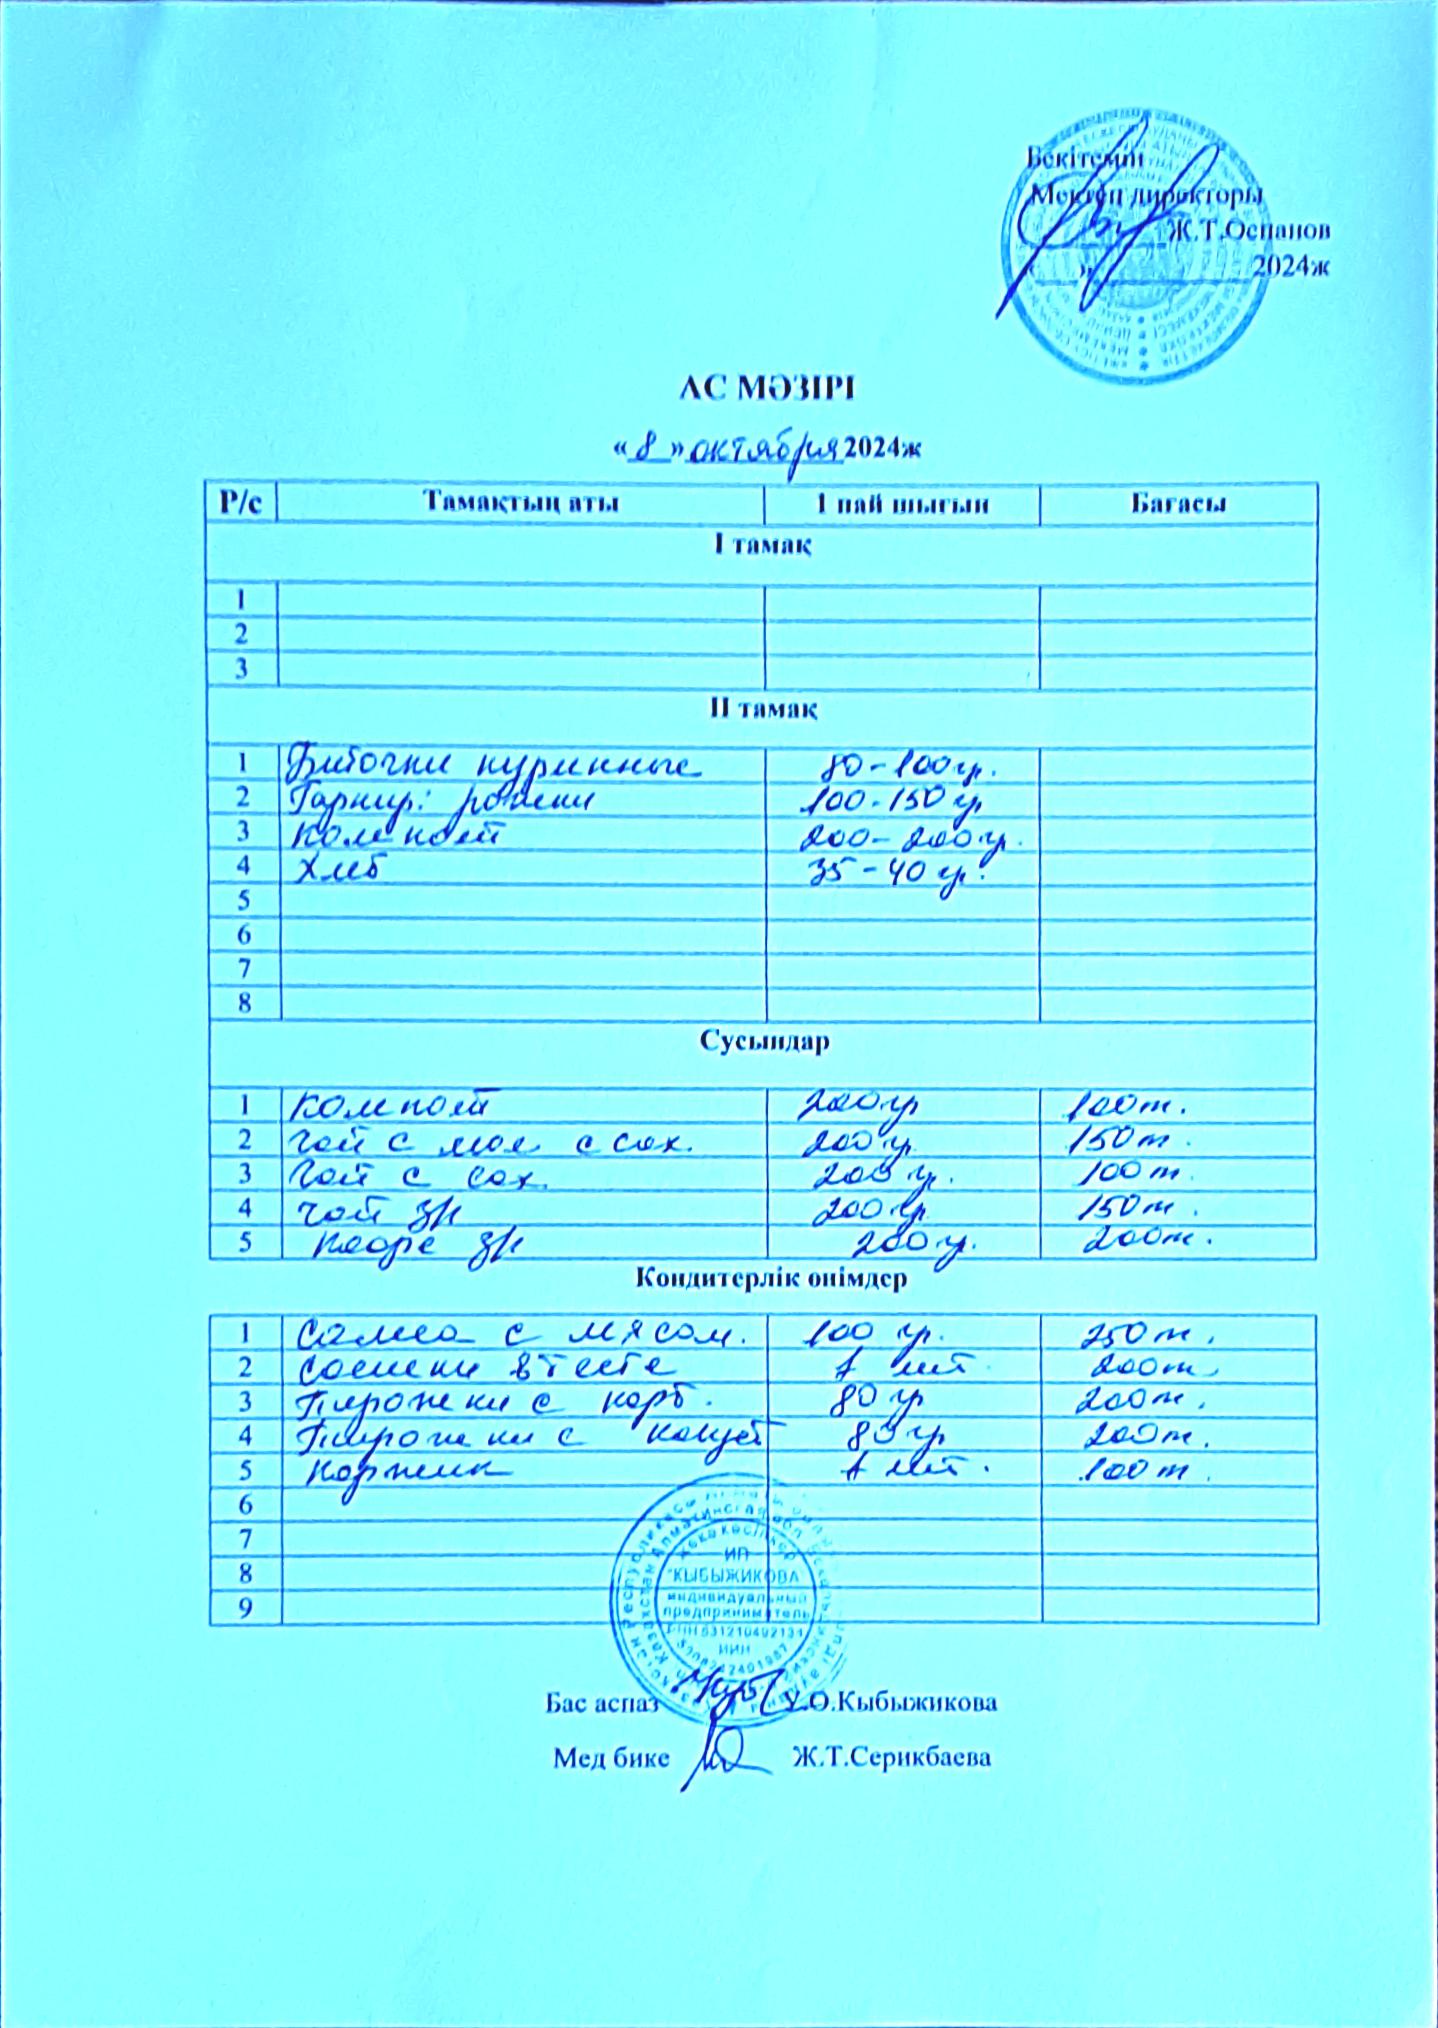 Бекітемін
Мектеп директоры
Ж.Т.Оспанов
« » 2024ж
АС МӘЗІРІ
« 8 » октября 2024ж
Р/с Тамақтың аты 1 пай шығын Бағасы
І тамақ
1
2
3
ІІ тамақ
1 Биточки куринные 80-100гр.
2 Гарнир: рожки 100-150гр
3 Компот 200-200гр.
4 Хлеб 35-40гр.
5
6
7
8
Сусындар
1 Компот 200гр 100т.
2 Чай с мол с сах. 200гр. 150т.
3 Чай с сах. 200гр. 100т.
4 Чай 3/1 200гр. 150т.
5 Кофе 3/1 200гр. 200т.
Кондитерлік өнімдер
1 Самса с мясом. 100 гр. 250т.
2 Сосиски в тесте 1 шт. 200т.
3 Пирожки с карт. 80гр 200т.
4 Пирожки с капуст 80гр 200т.
5 Коржик 1 шт. 100т.
6
7
8
9
жеке кәсіпкер
ИП
"КЫБЫЖИКОВА
индивидуальный
предприниматель
ИИН
Бас аспаз У.О.Кыбыжикова
Мед бике Ж.Т.Серикбаева